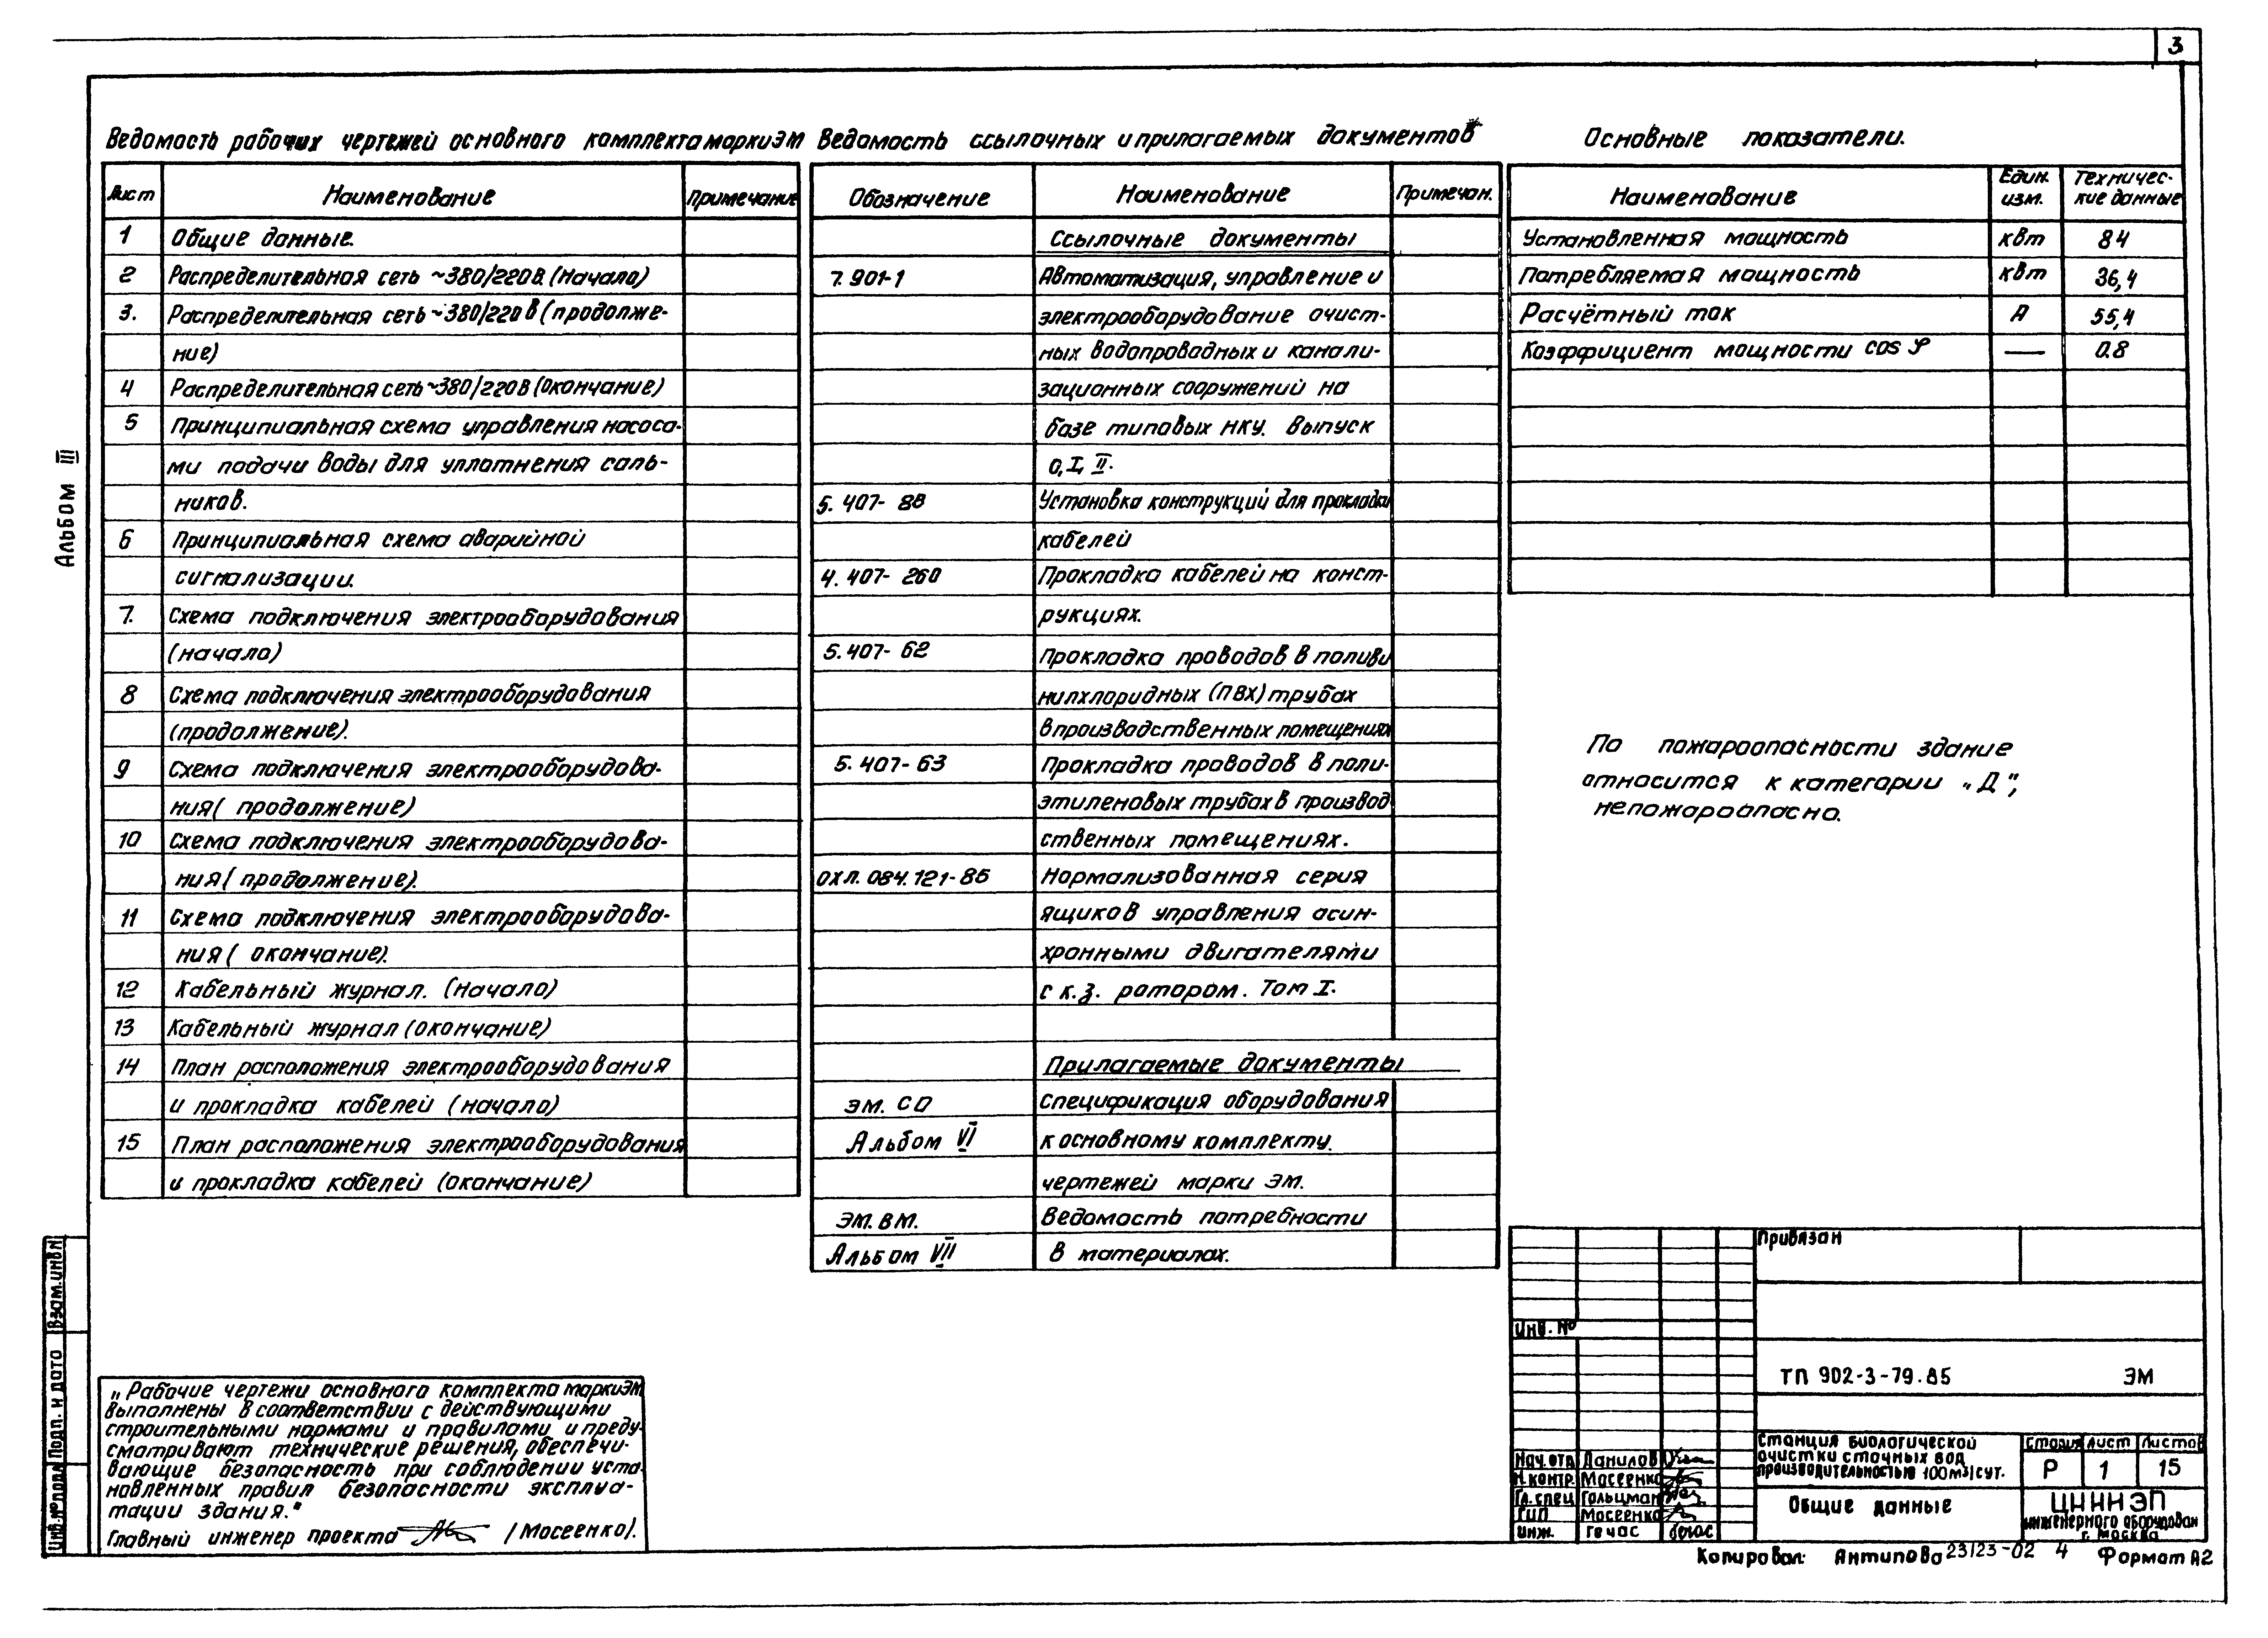 3
Ведомость рабочих чертежей основного комплекта марки ЭМ
Лист Наименование Примечание
1 Общие данные.
2 Распределительная сеть ~380/220в. (Начало)
3. Распределительная сеть ~380/220в (продолже-
ние)
4 Распределительная сеть ~380/220в (окончание)
5 Принципиальная схема управления насоса-
ми подачи воды для уплотнения саль-
ников.
6 Принципиальная схема аварийной
сигнализации.
7. Схема подключения электрооборудования
(начало)
8 Схема подключения электрооборудования
(продолжение).
9 Схема подключения электрооборудова-
ния (продолжение)
10 Схема подключения электрооборудова-
ния (продолжение).
11 Схема подключения электрооборудова-
ния (окончание).
12 Кабельный журнал. (начало)
13 Кабельный журнал (окончание)
14 План расположения электрооборудования
и прокладка кабелей (начало)
15 План расположения электрооборудования
и прокладка кабелей (окончание)
Ведомость ссылочных и прилагаемых документов
Обозначение Наименование Примечан.
Ссылочные документы
7.901-1 Автоматизация, управление и
электрооборудование очист-
ных водопроводных и канали-
зационных сооружений на
базе типовых НКУ. Выпуск
0, I, II.
5.407-88 Установка конструкций для прокладки
кабелей
4.407-260 Прокладка кабелей на конст-
рукциях.
5.407-62 Прокладка проводов в поливи
нилхлоридных (ПВХ) трубах
в производственных помещениях
5.407-63 Прокладка проводов в поли-
этиленовых трубах в производ
ственных помещениях.
ОХЛ.084.121-85 Нормализованная серия
ящиков управления асин-
хронными двигателями
с к.з. ротором. Том I.
Прилагаемые документы
ЭМ. СО Спецификация оборудования
Альбом VI к основному комплекту.
чертежей марки ЭМ.
ЭМ.ВМ. Ведомость потребности
Альбом VII в материалах.
Основные показатели.
Наименование Един. изм. Техничес-
кие данные
Установленная мощность квт 84
Потребляемая мощность квт 36,4
Расчётный ток А 55,4
Коэффициент мощности cos φ — 0.8
По пожароопасности здание
относится к категории „Д",
непожароопасно.
Альбом III
Взам.инв№
Подп. и дата
Инв.№ подл
„Рабочие чертежи основного комплекта марки ЭМ
выполнены в соответствии с действующими
строительными нормами и правилами и преду-
сматривают технические решения, обеспечи-
вающие безопасность при соблюдении уста-
новленных правил безопасности эксплуа-
тации здания."
Главный инженер проекта (Мосеенко).
Привязан
Инв. №
ТП 902-3-79.85 ЭМ
Нач.отд Данилов
Н.контр. Мосеенко
Гл.спец Гольцман
ГИП Мосеенко
инж. Гечас
Станция биологической
очистки сточных вод
производительностью 100м3/сут.
Стадия Лист Листов
Р 1 15
Общие данные
ЦНИИЭП
инженерного оборудован
г. Москва
Копировал: Антипова 23123-02 4 Формат А2